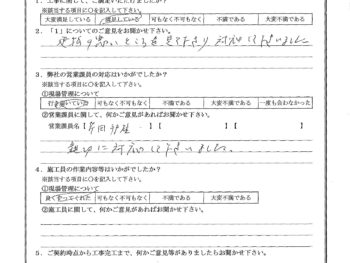 ※該当する項目に○を記入して下さい。
大変満足している 満足している 可もなく不可もなく 不満である 大変不満である
2．「1」についてのご意見をお聞かせ下さい。
対応して下さいました
3．弊社の営業課員の対応はいかがでしたか？
※該当する項目に○を記入して下さい。
①現場管理について
行き届いていた 可もなく不可もなく 不満である 大変不満である 一度も会わなかった
②営業課員に関して、何かご意見があればお聞かせ下さい。
営業課員名【 】【 】【 】
親切に対応して下さいました。
4．施工員の作業内容等はいかがでしたか？
※該当する項目に○を記入して下さい。
①現場管理について
良くやってくれた 可もなく不可もなく 不満である 大変不満である
②施工員に関して、何かご意見があればお聞かせ下さい。
5．ご契約時点から工事完工まで、何かご意見等がありましたらお聞かせ下さい。